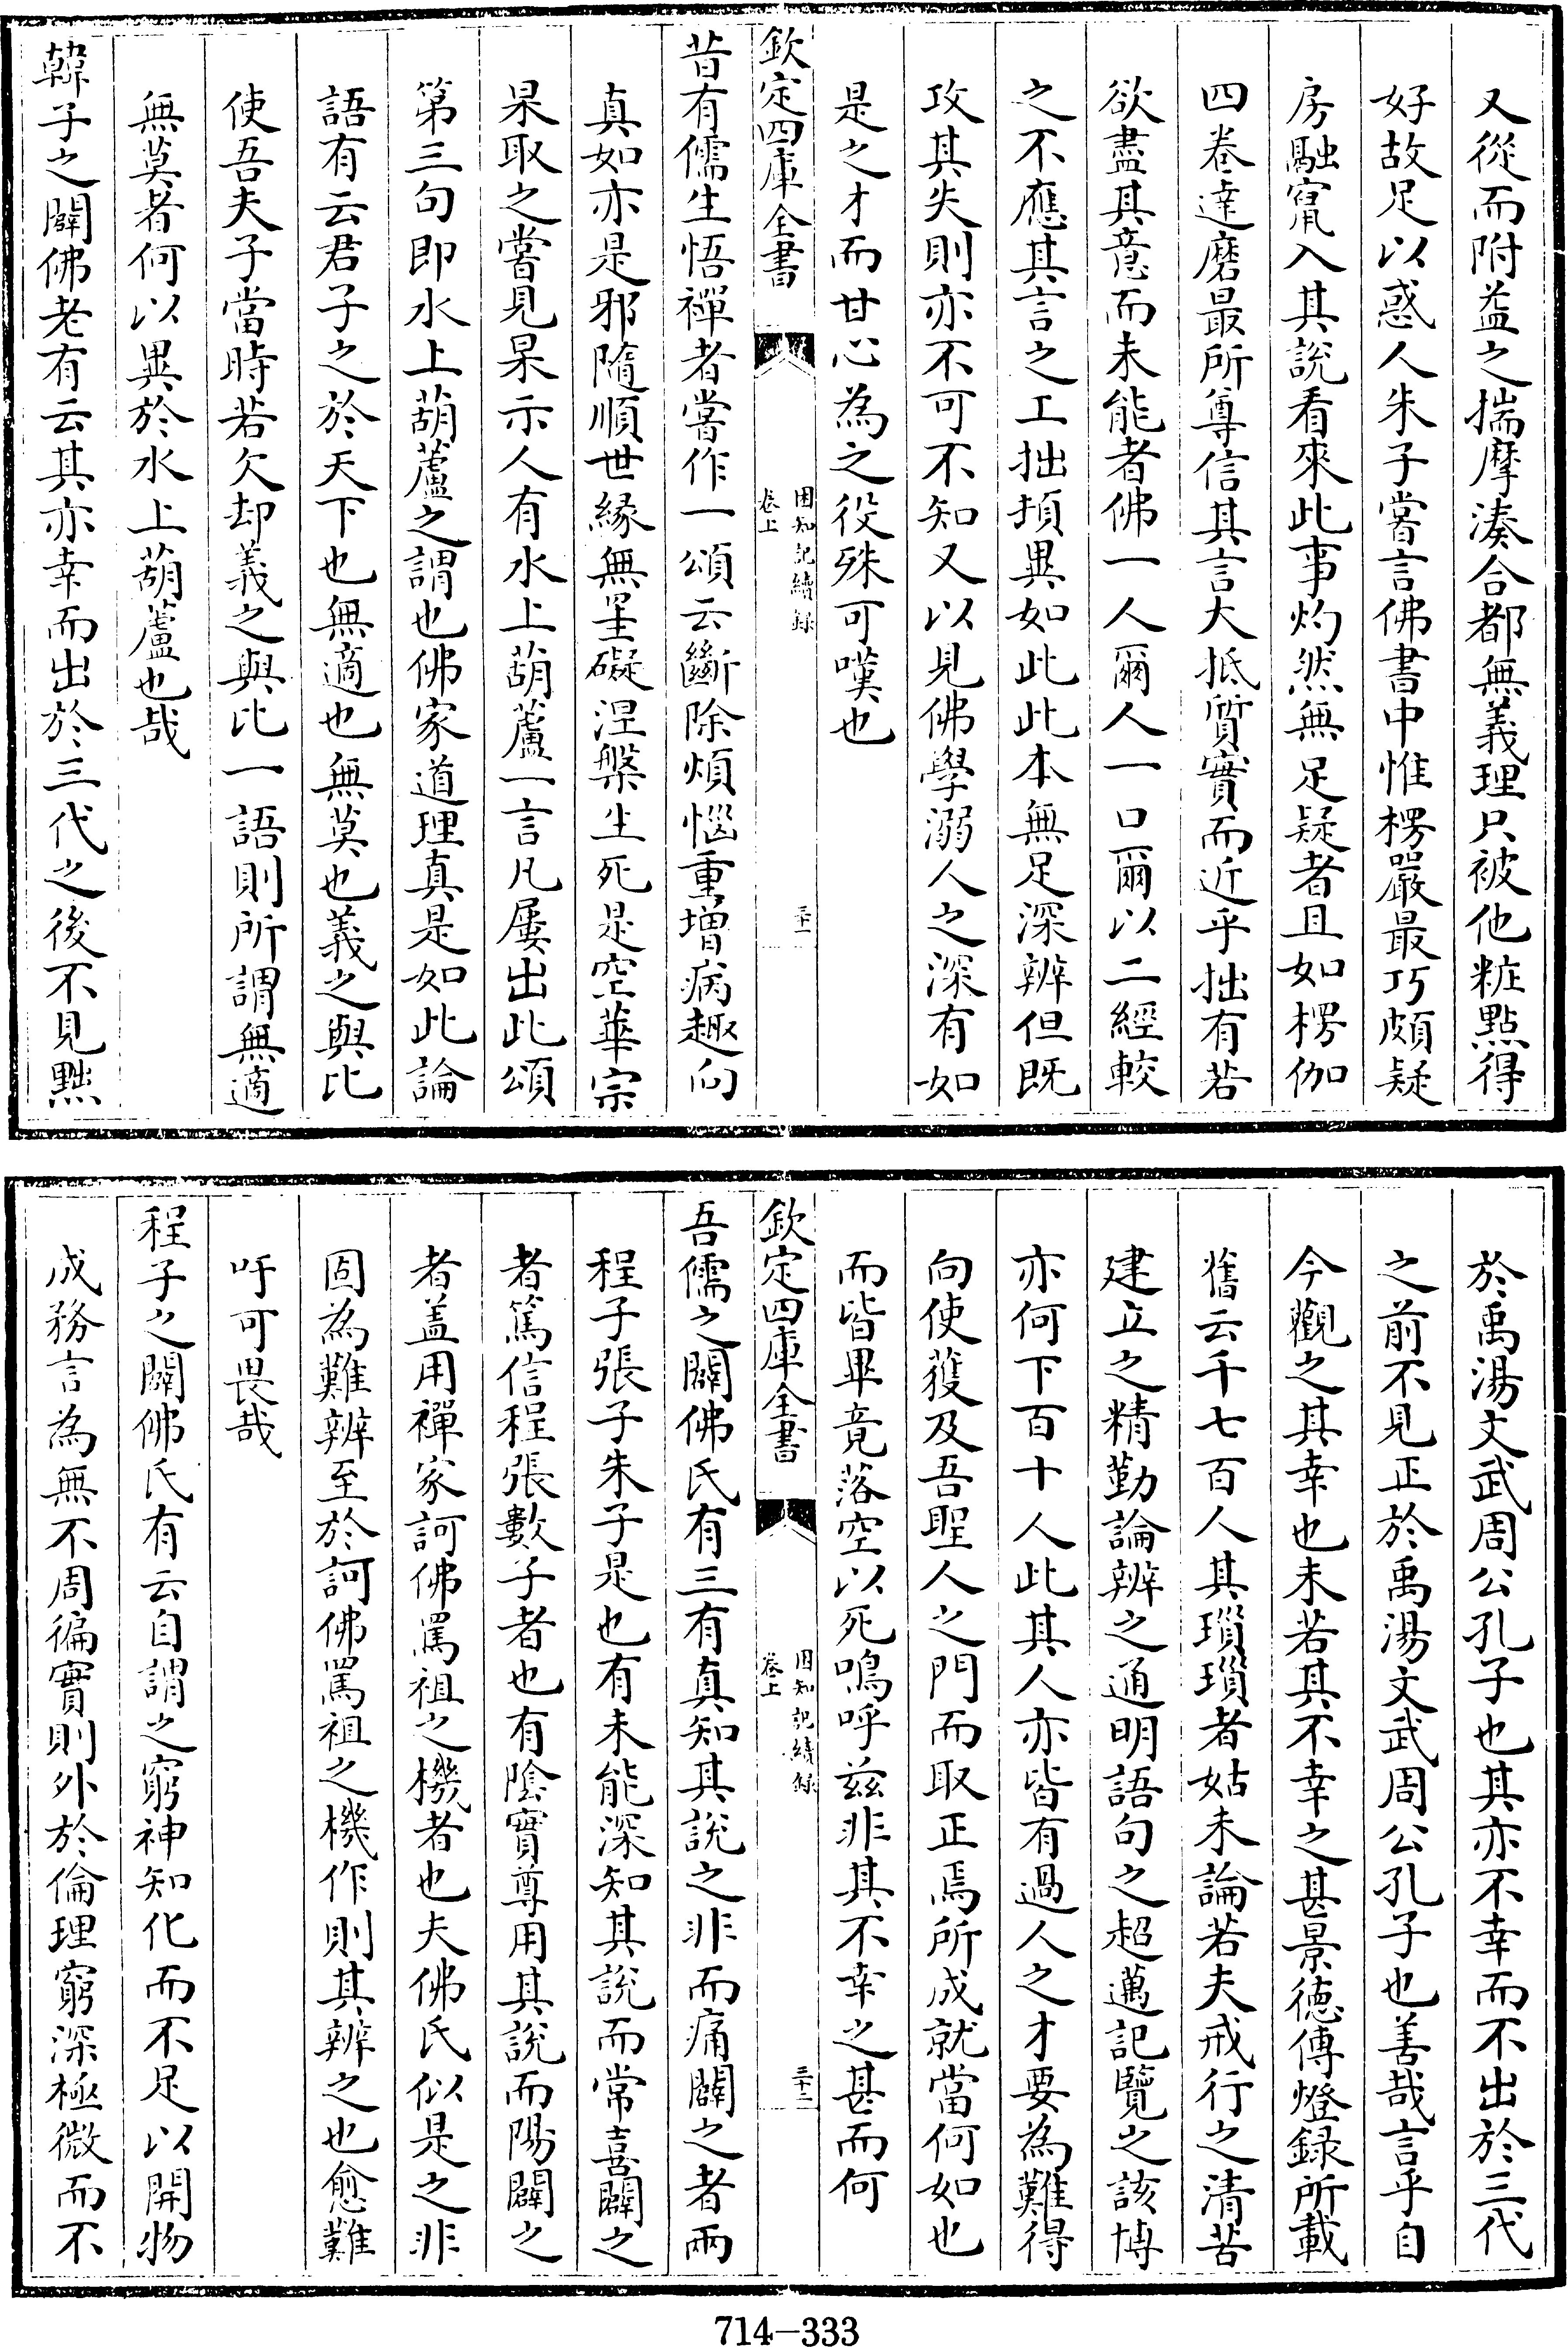 又從而附益之揣摩湊合都無義理只被他粧點得
好故足以惑人朱子嘗言佛書中惟楞嚴最巧頗疑
房融竄入其說看來此事灼然無足疑者且如楞伽
四卷達磨最所尊信其言大抵質實而近乎拙有若
欲盡其意而未能者佛一人爾人一口爾以二經較
之不應其言之工拙頓異如此此本無足深辨但既
攻其失則亦不可不知又以見佛學溺人之深有如
是之才而甘心為之役殊可嘆也
欽定四庫全書
困知記續錄
卷上
三十一
昔有儒生悟禪者嘗作一頌云斷除煩惱重增病趣向
真如亦是邪隨順世緣無罣礙涅槃生死是空華宗
杲取之嘗見杲示人有水上葫蘆一言凡屢出此頌
第三句即水上葫蘆之謂也佛家道理真是如此論
語有云君子之於天下也無適也無莫也義之與比
使吾夫子當時若欠却義之與比一語則所謂無適
無莫者何以異於水上葫蘆也哉
韓子之闢佛老有云其亦幸而出於三代之後不見黜
於禹湯文武周公孔子也其亦不幸而不出於三代
之前不見正於禹湯文武周公孔子也善哉言乎自
今觀之其幸也未若其不幸之甚景德傳燈錄所載
舊云千七百人其瑣瑣者姑未論若夫戒行之清苦
建立之精勤論辨之通明語句之超邁記覽之該博
亦何下百十人此其人亦皆有過人之才要為難得
向使獲及吾聖人之門而取正焉所成就當何如也
而皆畢竟落空以死嗚呼兹非其不幸之甚而何
欽定四庫全書
困知記續錄
卷上
三十二
吾儒之闢佛氏有三有真知其說之非而痛闢之者兩
程子張子朱子是也有未能深知其說而常喜闢之
者篤信程張數子者也有陰實尊用其說而陽闢之
者盖用禪家訶佛罵祖之機者也夫佛氏似是之非
固為難辨至於訶佛罵祖之機作則其辨之也愈難
吁可畏哉
程子之闢佛氏有云自謂之窮神知化而不足以開物
成務言為無不周徧實則外於倫理窮深極微而不
714-333